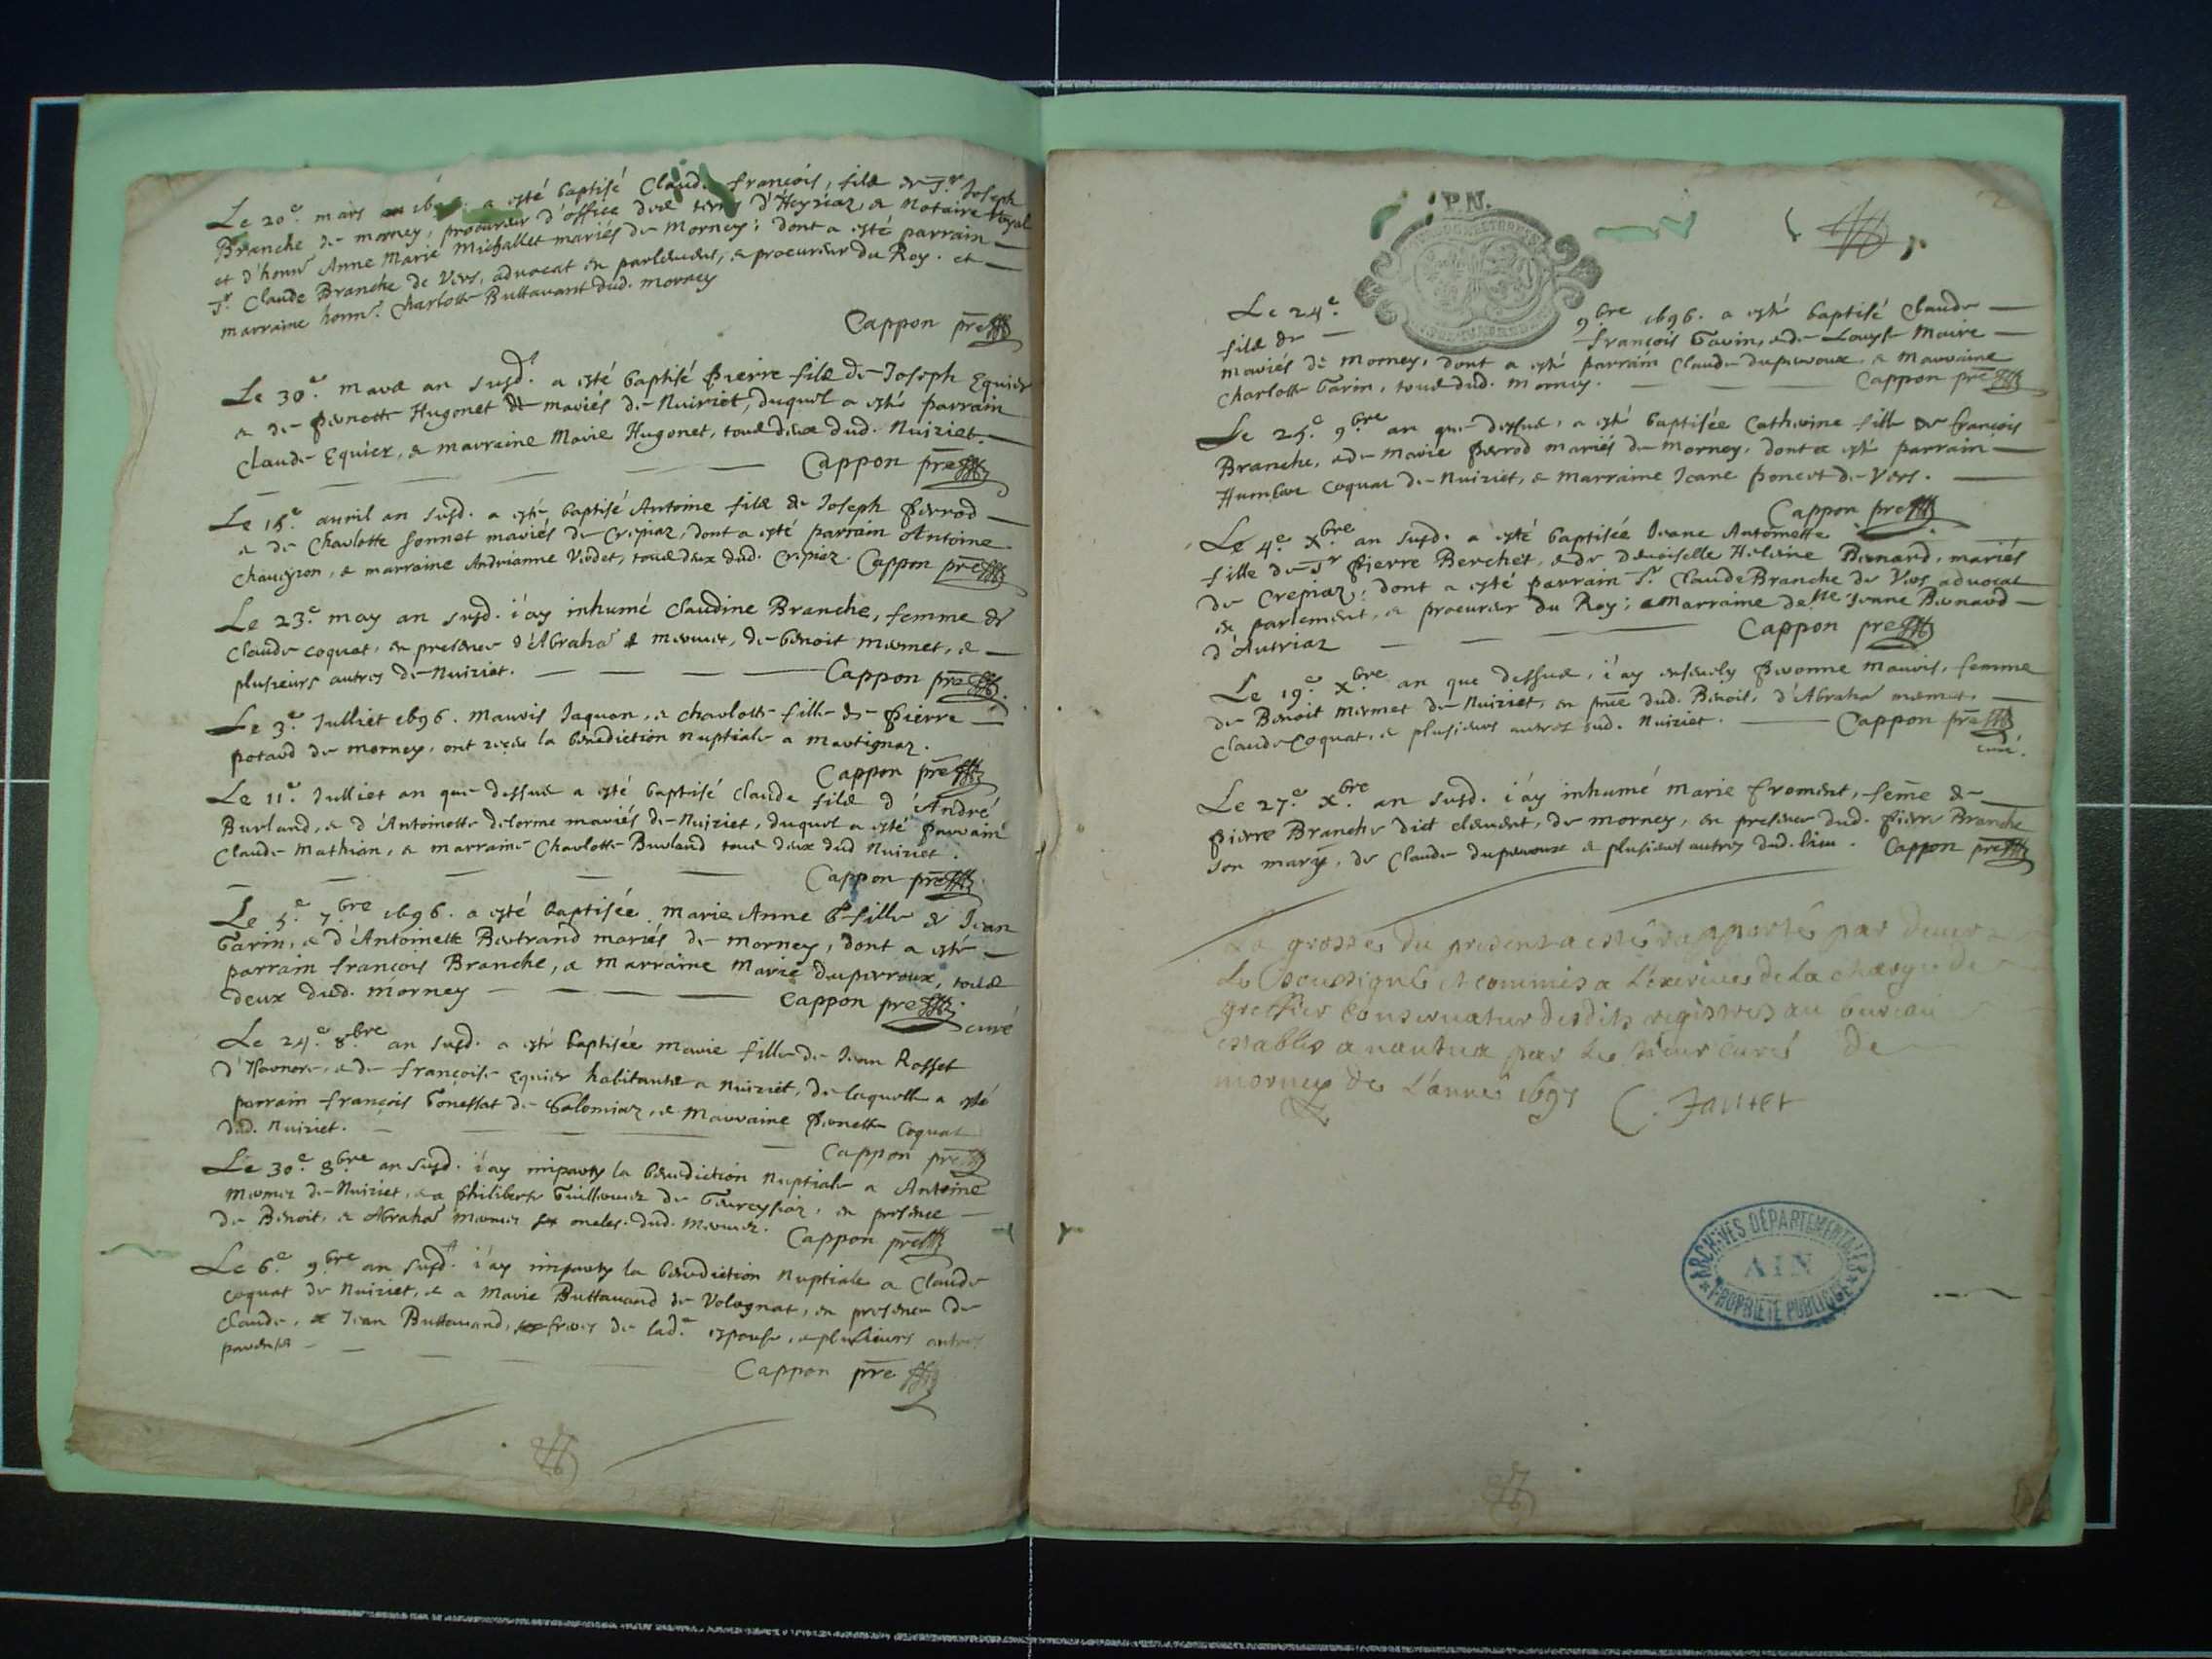 Le 20e. mars a esté baptisé Claude françois, filz de Sr. Joseph
Branche de morney, procureur d'office des terres d'Heyriaz & Notaire Royal
et d'honne Anne Marie Michallet mariés de Morney; dont a esté parrain
Sr. Claude Branche de Vers, advocat en parlement, & procureur du Roy. et
marraine honne. Charlotte Buttavant dud. morney
Cappon pre
Le 30e. mars an susd. a esté baptisé Pierre filz de Joseph Equier
& de Pernette Hugonet mariés de Nuiriet, duquel a esté parrain
Claude Equier, & marraine Marie Hugonet, tous deux dud. Nuiriet.
Cappon pre
Le 15e. avril an susd. a esté baptisé Antoine filz de Joseph Perrod
& de Charlotte sonnet mariés de Crepiaz, dont a esté parrain Antoine
Chaugron, & marraine Andrianne Vodet, tous deux dud. Crepiaz. Cappon pre
Le 23e. may an susd. i'ay inhumé Claudine Branche, femme de
Claude coquat, en presence d'Abraha & mermet, de benoit mermet, &
plusieurs autres de Nuiriet. Cappon pre
Le 3e. Julliet 1696. mauris Jaquan, & charlotte fille de Pierre
potard de morney, ont receu la benediction nuptiale a Martignaz.
Cappon pre
Le 11e. Julliet an que dessus a esté baptisé Claude filz d'André
Burland, & d'Antoinette delorme mariés de Nuiriet, duquel a esté parrain
Claude Mathian, & marraine Charlotte Burland tous deux dud Nuiriet.
Cappon pre
Le 5e. 7bre 1696. a esté baptisée Marie Anne fille de Jean
Garin, & d'Antoinette Bertrand mariés de morney, dont a esté
parrain françois Branche, & Marraine Marie duperroux, tous
deux dud. Morney Cappon pre
curé
Le 24e. 8bre an susd. a esté baptisée Marie fille de Jean Rosset
d'Hornore, & de françoise Equier habitants a Nuiriet, de laquelle a esté
parrain françois Gonessat de Colomiaz, & Marraine Pernette Coquat
dud. Nuiriet.
Cappon pre
Le 30e. 8bre an susd. i'ay imparty la benediction Nuptiale a Antoine
Mermet de Nuiriet, & a philiberte Guillermet de Gereyssiaz, en presence
de Benoit, & Abraha Mermet oncles dud. Mermet. Cappon pre
Le 6e. 9bre an susd. i'ay imparty la benediction nuptiale a Claude
coquat de Nuiriet, & a Marie Buttavand de Volognat, en presence de
Claude, & Jean Buttavand, freres de lad. espouse, & plusieurs autres
parents
Cappon pre
P.N.
Le 24e. 9bre 1696. a esté baptisé Claude
filz de françois Garin, & de Louyse Maire
mariés de Morney, dont a esté parrain Claude duperroux, & Marraine
Charlotte Garin, tous dud. morney. Cappon pre
Le 25e. 9bre an que dessus, a esté baptisée Catherine fille de françois
Branche, & de Marie Perrod mariés de Morney, dont a esté parrain
Humbert Coquat de Nuiriet, & marraine Jeane Poncet de Vers.
Cappon pre
Le 4e. Xbre an susd. a esté baptisée Jeane Antoinette
fille de Sr Pierre Berchet, & de damoiselle Helaine Bernard, mariés
de Crepiaz; dont a esté parrain Sr. Claude Branche de Vers advocat
en parlement, & procureur du Roy; & Marraine delle Jeanne Bernard
d'Autriaz Cappon pre
Le 19e. Xbre an que dessus, i'ay ensevely Pernonne Mauris, femme
de Benoit Mermet de Nuiriet, en pnce dud. Benoit, d'Abraha mermet,
Claude Coquat, & plusieurs autres dud. Nuiriet. Cappon pre
curé.
Le 27e. Xbre an susd. i'ay inhumé Marie froment, feme de
Pierre Branche dict clement, de Morney, en presence dud. Pierre Branche
son mary, de Claude duperroux & plusieurs autres dud. lieu. Cappon pre
La grosse du present a esté rapportée par devers
le soussigné commis a l'exercice de la charge de
greffier conservateur desdits registres au bureau
establis a nantua par le sieur curé de
morney de l'année 1697 C. Jantet
ARCHIVES DÉPARTEMENTALES
AIN
PROPRIÉTÉ PUBLIQUE